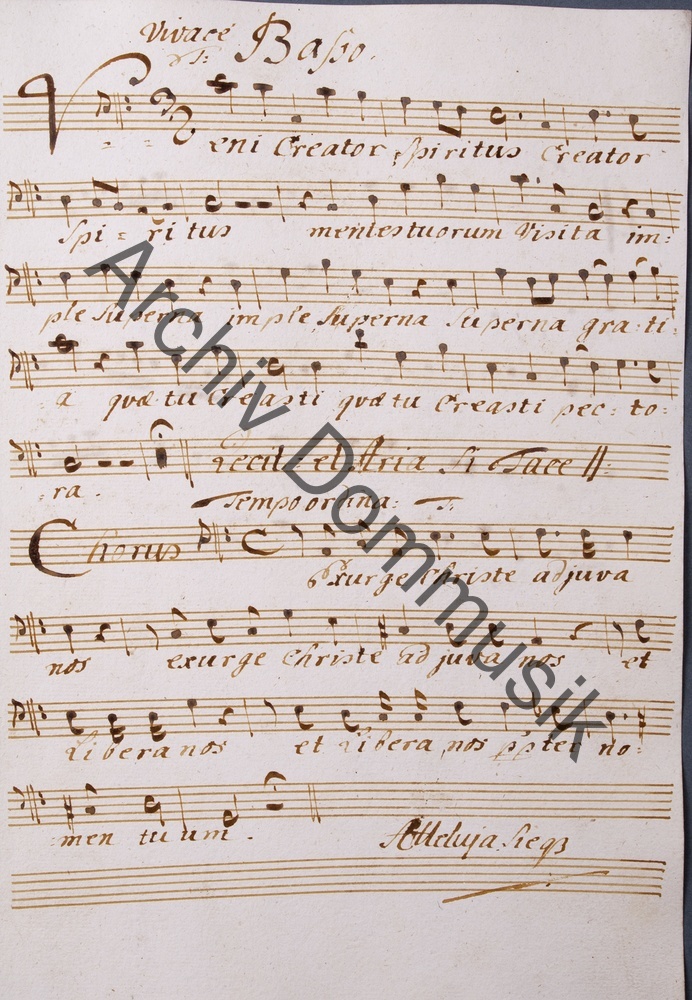 Vivace Basso.
T:
Veni Creator Spiritus Creator
Spi = ri tus mentes tuorum Visita im:
ple Superna imple Superna Superna gra: ti:
a quæ tu Creasti quæ tu Creasti pec: to:
ra.
Recit: et Aria Si Tace
Tempo ordina: T:
Chorus
Exurge Christe adjuva
nos exurge Christe adjuva nos et
Libera nos et Libera nos pp̄ter no:
men tuum.
Alleluja. Sieq
Archiv Dommusik